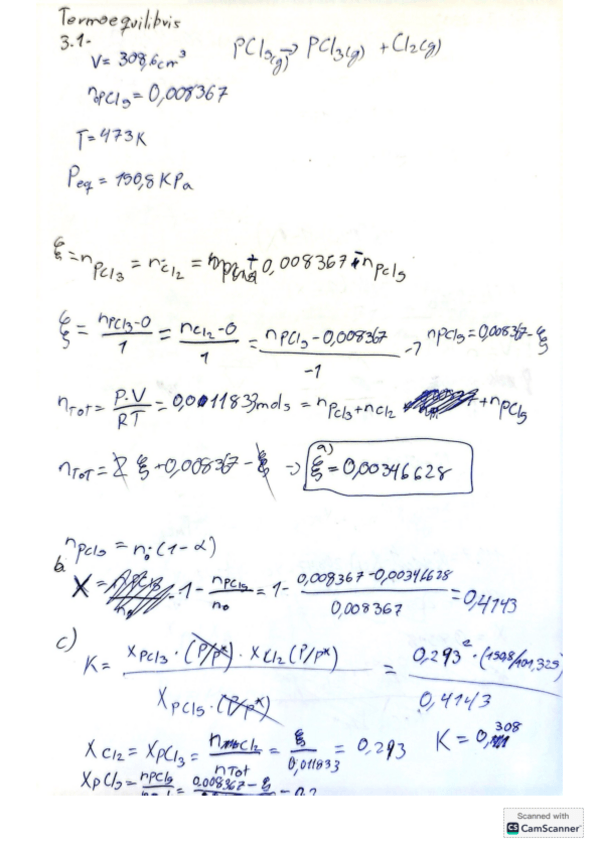 Termoequilibris
3.1-
V= 308,6cm³ PCl5(g) → PCl3(g) + Cl2(g)
nPCl5 = 0,008367
T=473K
Peq = 150,8 KPa
ξ = nPCl3 = nCl2 = 0,008367 - nPCl5
ξ = nPCl3-0/1 = nCl2-0/1 = nPCl5-0,008367/-1 → nPCl5=0,008367-ξ
nTOT = P·V/RT = 0,011833mols = nPCl3+nCl2 +nPCl5
nTOT = 2ξ+0,008367-ξ → a) ξ=0,00346628
nPCl5 = n0(1-α)
b. X = 1 - nPCl5/n0 = 1 - 0,008367-0,00346628/0,008367 = 0,4143
c) K = XPCl3·(P/P*)·XCl2(P/P*)/XPCl5·(P/P*) = 0,293²·(150,8/101,325)/0,4143
XCl2 = XPCl3 = nCl2/nTOT = ξ/0,011833 = 0,293 K = 0,308
XPCl5 = nPCl5 = 0,008367-ξ
Scanned with
CS CamScanner